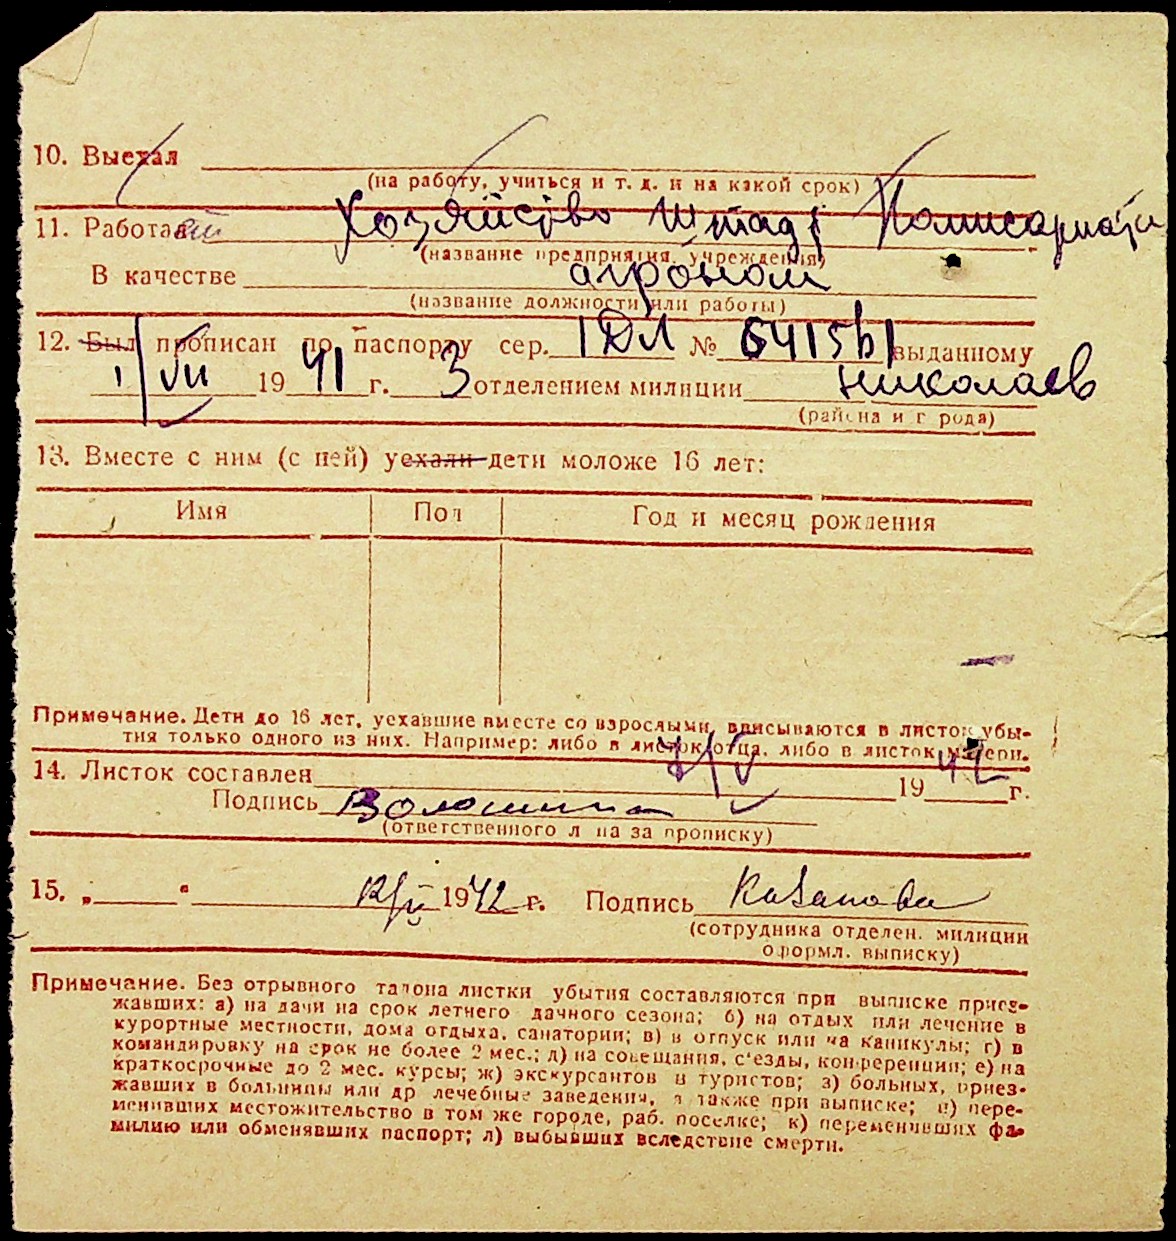 10. Выехал
(на работу, учиться и т. д. и на какой срок)
11. Работает Хозяйство Штаду Комисариата
(название предприятия, учреждения)
В качестве агроном
(название должности или работы)
12. Был прописан по паспорту сер. I ДЛ № 641561 выданному
1/VII 1941 г. 3 отделением милиции Николаев
(района и города)
13. Вместе с ним (с ней) уехали дети моложе 16 лет:
Имя Пол Год и месяц рождения
Примечание. Дети до 16 лет, уехавшие вместе со взрослыми, вписываются в листок убы-
тия только одного из них. Например: либо в листок отца, либо в листок матери.
14. Листок составлен 7/V 1942 г.
Подпись Волошина
(ответственного лица за прописку)
15. „ “ 12/V 1942 г. Подпись Казакова
(сотрудника отделен. милиции
оформл. выписку)
Примечание. Без отрывного талона листки убытия составляются при выписке приез-
жавших: а) на дачи на срок летнего дачного сезона; б) на отдых или лечение в
курортные местности, дома отдыха, санатории; в) в отпуск или на каникулы; г) в
командировку на срок не более 2 мес.; д) на совещания, с'езды, конференции; е) на
краткосрочные до 2 мес. курсы; ж) экскурсантов и туристов; з) больных, приез-
жавших в больницы или др лечебные заведения, а также при выписке; и) пере-
менивших местожительство в том же городе, раб. поселке; к) переменивших фа-
милию или обменявших паспорт; л) выбывших вследствие смерти.